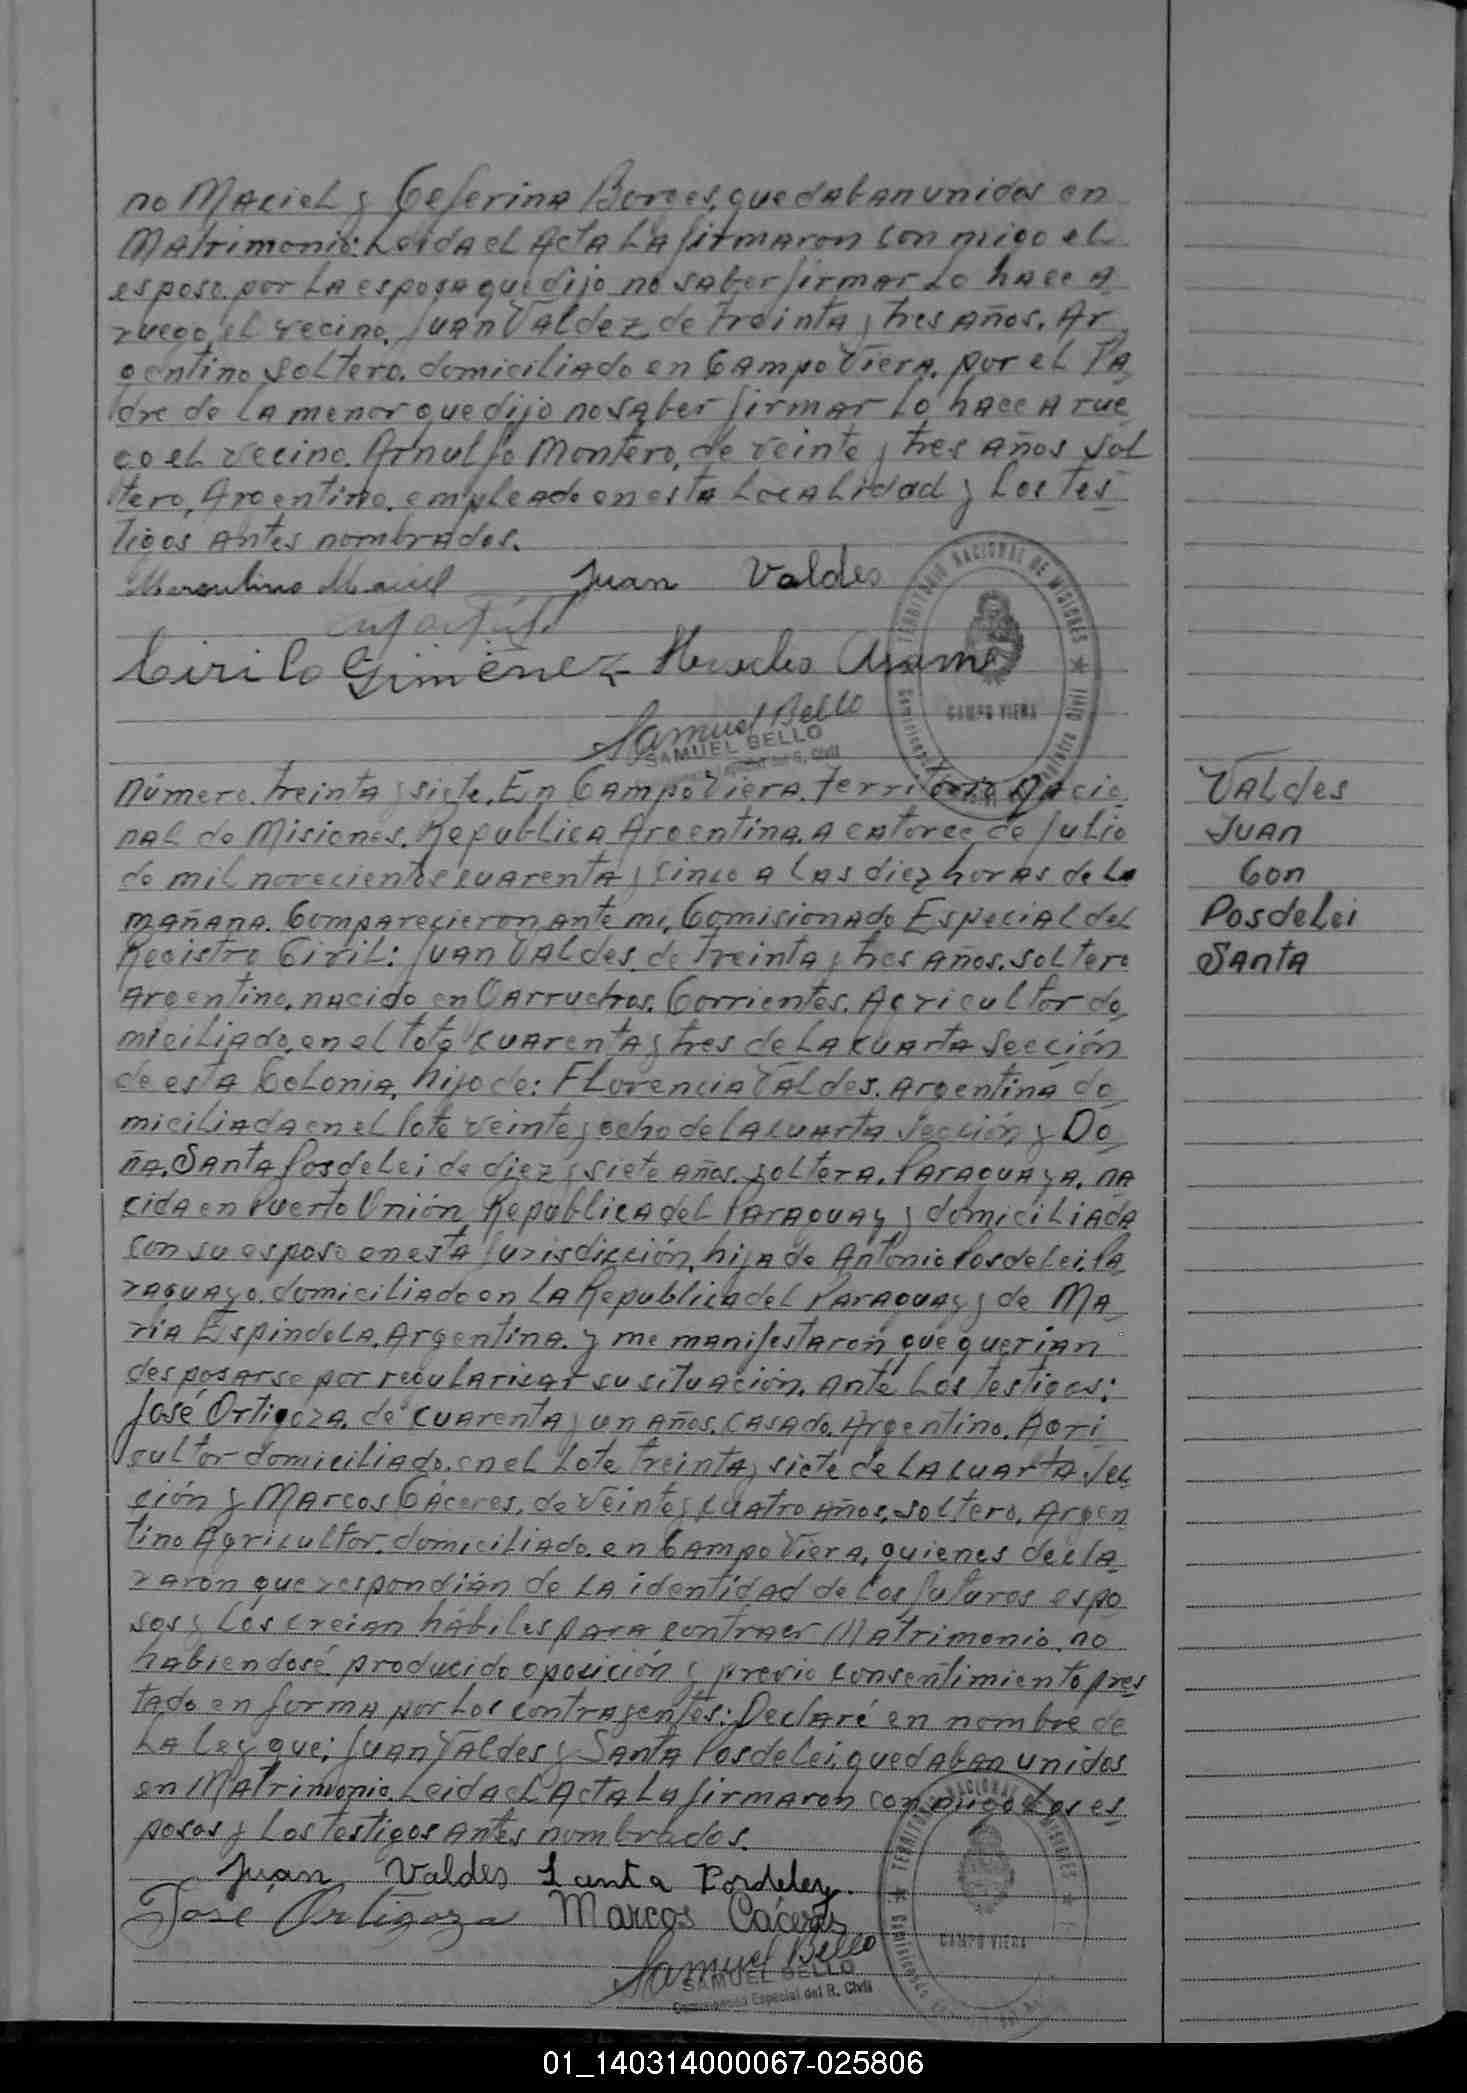 no Maciel y Ceferina Borges, quedaban unidos en
Matrimonio: Leida el Acta la firmaron con migo el
esposo. por la esposa que dijo no saber firmar lo hace a
ruego, el vecino, Juan Valdez de treinta y tres años. Ar
gentino soltero. domiciliado en Campo Viera. por el Pa
dre de la menor que dijo no saber firmar lo hace a rue
go el vecino. Arnulfo Montero, de veinte y tres años sol
tero, Argentino. empleado en esta localidad y los tes
tigos antes nombrados.
Juan Valdes
Cirilo Gimenez
Samuel Bello
SAMUEL BELLO
TERRITORIO NACIONAL DE MISIONES
CAMPO VIERA
Número. treinta y siete. En Campo Viera. territorio Nacio
nal de Misiones. Republica Argentina. a catorce de Julio
de mil novecientos cuarenta y cinco a las diez horas de la
mañana. Comparecieron ante mi, Comisionado Especial del
Registro Civil: Juan Valdes. de treinta y tres años. soltero
Argentino. nacido en Garruchos. Corrientes. Agricultor do
miciliado. en el lote cuarenta y tres de la cuarta Sección
de esta Colonia, hijo de: Florencia Valdes. Argentina do
miciliada en el lote veinte y ocho de la cuarta Sección y Do
ña. Santa Posdelei de diez y siete años. soltera. Paraguaya. na
cida en Puerto Unión, Republica del Paraguay y domiciliada
con su esposo en esta Jurisdicción, hija de Antonio Posdelei. Pa
raguayo. domiciliado en la Republica del Paraguay y de Ma
ria Espindola. Argentina. y me manifestaron que querian
desposarse por regularizar su situación. ante los testigos:
José Ortigoza. de cuarenta y un años. casado. Argentino. Agri
cultor domiciliado. en el lote treinta y siete de la cuarta Sec
ción y Marcos Cáceres, de veinte y cuatro años, soltero. Argen
tino Agricultor. domiciliado. en Campo Viera, quienes decla
raron que respondián de la identidad de los futuros espo
sos y los creian hábiles para contraer Matrimonio. no
habiendosé producido oposición y previo consentimiento pres
tado en forma por los contrayentes: Declaré en nombre de
la Ley que: Juan Valdes y Santa Posdelei. quedaban unidos
en Matrimonio. Leida el Acta la firmaron con migo los es
posos y los testigos antes nombrados.
Juan Valdes Santa Posdeley.
José Ortigoza Marcos Cáceres
Samuel Bello
SAMUEL BELLO
Comisionado Especial del R. Civil
TERRITORIO NACIONAL DE MISIONES
CAMPO VIERA
Valdes
Juan
Con
Posdelei
Santa
01_140314000067-025806